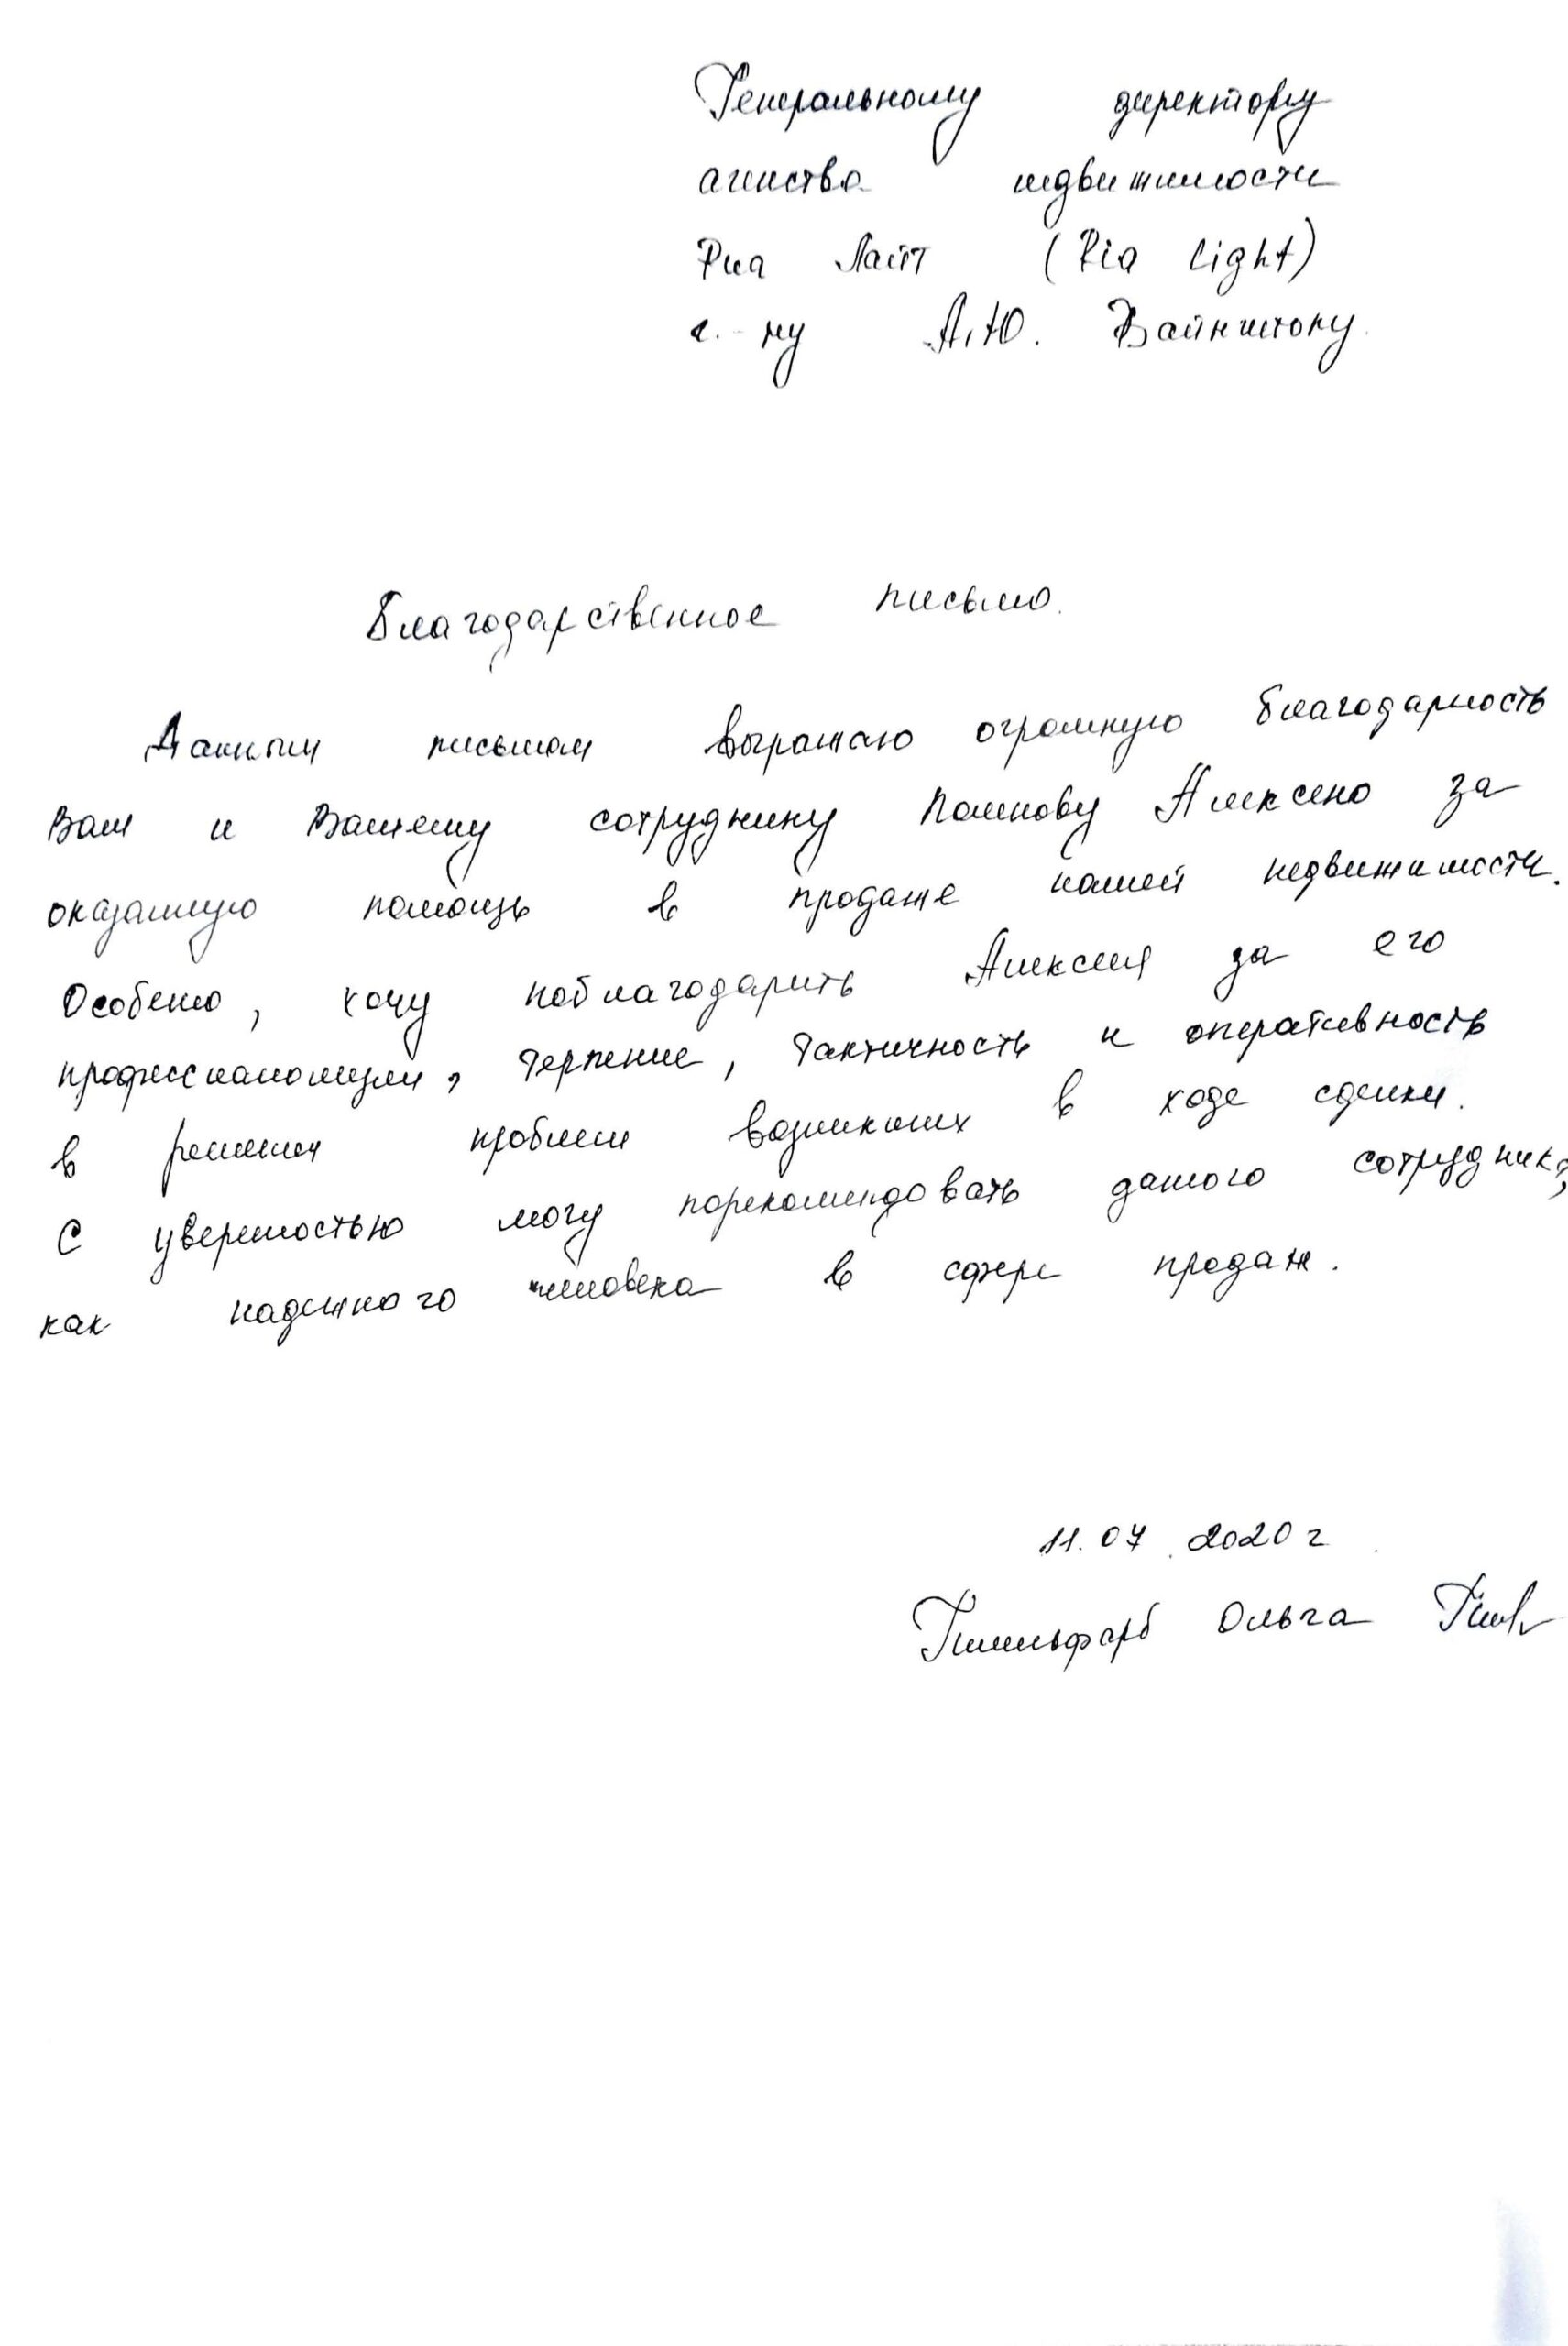 Генеральному директору
агенства недвижимости
Риа Лайт (Ria light)
г.-ну А.Ю. Вайнштоку.
Благодарственное письмо.
Данным письмом выражаю огромную благодарность
Вам и Вашему сотруднику Алексею за
оказанную помощь в продаже нашей недвижимости.
Особенно, хочу поблагодарить Алексея за его
профессионализм, терпение, тактичность и оперативность
в решении проблем возникших в ходе сделки.
С уверенностью могу порекомендовать данного сотрудника,
как надежного человека в сфере продаж.
11.07.2020 г.
Ольга